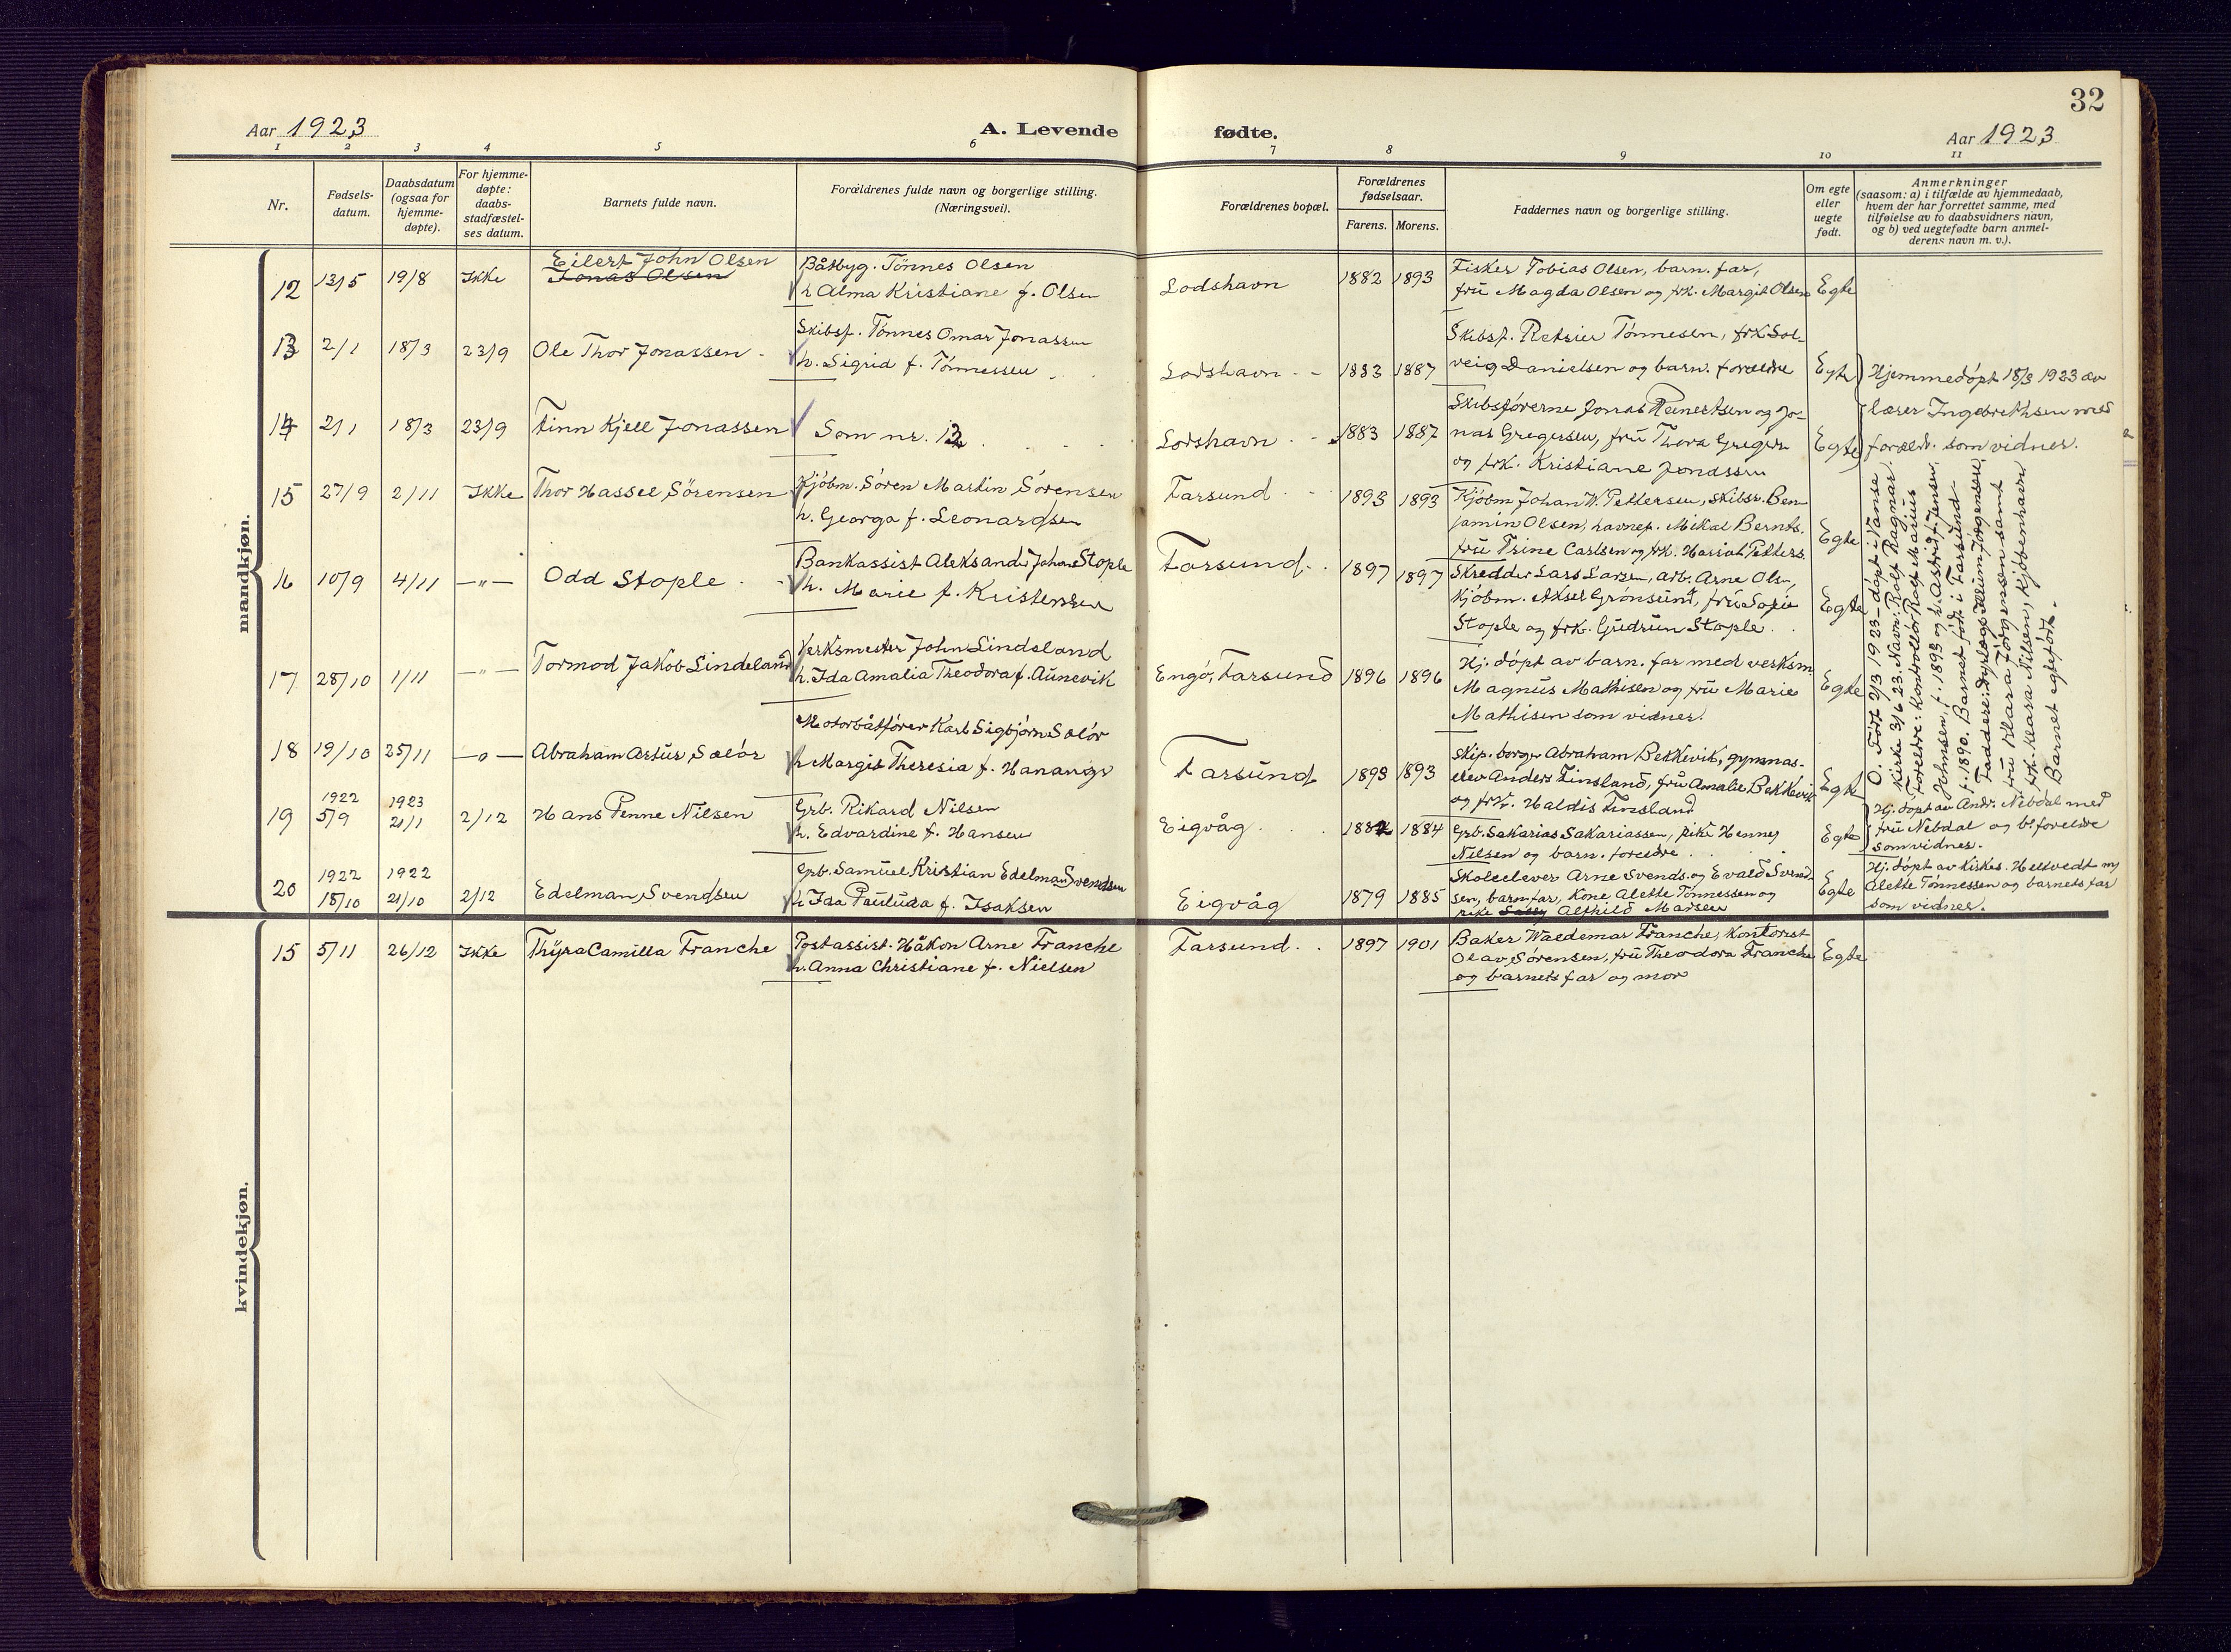 32
Aar 1923
A. Levende
fødte.
Aar 1923
1 2 3 4 5 6 7 8 9 10 11
Nr.
Fødsels-
datum.
Daabsdatum
(ogsaa for
hjemme-
døpte).
For hjemme-
døpte:
daabs-
stadfæstel-
ses datum.
Barnets fulde navn.
Forældrenes fulde navn og borgerlige stilling.
(Næringsvei).
Forældrenes bopæl.
Forældrenes
fødselsaar.
Farens. Morens.
Faddernes navn og borgerlige stilling.
Om egte
eller
uegte
født.
Anmerkninger
(saasom: a) i tilfælde av hjemmedaab,
hvem der har forrettet samme, med
tilføielse av to daabsvidners navn,
og b) ved uegtefødte barn anmel-
derens navn m. v.).
mandkjøn.
12 13/5 19/8 Ikke
Eilert John Olsen
Jonas Olsen
Båtbyg. Tönnes Olsen
h. Alma Kristiane f. Olsen
Lodshavn 1882 1893
Fisker Tobias Olsen, barn. far,
frü Magda Olsen og frk. Margit Olsen
Egte
13 2/1 18/3 23/9 Ole Thor Jonassen
Skibsf. Tönnes Omar Jonassen
h. Sigrid f. Tönnessen
Lodshavn 1883 1887
Skibsf. Retsius Tönnesen, frk Sol-
veig Danielsen og barn. foreldre
Egte
Hjemmedöpt 18/3 1923 av
lærer Ingebrethsen med
foreldr. som vidner.
14 2/1 18/3 23/9 Finn Kjell Jonassen
Som nr. 13
Lodshavn 1883 1887
Skibsförerne Jonas Reinertsen og Jo-
nas Gregersen, frü Thora Gregers
og frk. Kristiane Jonassen
Egte
15 27/9 2/11 Ikke Thor Hassel Sörensen
Kjöbm. Sören Martin Sörensen
h. Georga f. Leonardsen
Farsund 1893 1893
Kjöbm Johan W. Pettersen, skibsr. Ben
jamin Olsen, havnef. Mikal Bernts.
frü Trine Carlsen og frk. Harriet Petters.
Egte
16 10/9 4/11 —"— Odd Stople
Bankassist Aleksander Johan Stople
h. Marie f. Kristensen
Farsund 1897 1897
Skredder Lars Larsen, arb. Arne Olsn,
Kjöbm. Aksel Grönsund, frü Sofie
Stople og frk. Gudrun Stople.
Egte
17 28/10 1/11 —"— Tormod Jakob Lindeland
Verksmester John Lindsland
h. Ida Amalia Theodora f. Aunevik
Engö, Farsund 1896 1896
Hj. döpt av barn. far med verksm
Magnus Mathisen og frü Marie
Mathisen som vidner.
Egte
18 19/10 25/11 —o— Abraham Artur Salór
Motorbåtförer Karl Sigbjörn Salór
h. Margit Theresia f. Hananger
Farsund 1893 1893
Skip. borger Abraham Bekkevik, gymnas-
elev Anders Finsland, frü Amalie Bekkevik
og frk. Haldis Finsland
Egte
O. Född 2/3 1923 - döpt i Vanse
Kirke 3/6 23. Navn: Rolf Ragnar.
Foreldre: Kontrollör Rolf Marius
Johnsen, f. 1893 og h. Astrid f. Jensen
f. 1890. Barnet född i Farsund
Faddere: Dyrlæge Heim Jörgensen,
frü Klara Jörgensen samt
frk. Klara Nilsen, Kjöbenhavn
Barnet egtefödt.
19 1922 5/9 1923 21/1 2/12 Hans Penne Nilsen
Grb. Rikard Nilsen
h. Edvardine f. Hansen
Eigvåg 1884 1884
Grb. Sakarias Sakariassen, pike Henny
Nilsen og barn. foreldre
Egte
Hj. döpt av Andr. Nebdal med
frü Nebdal og b. foreldre
som vidner.
20 1922 15/10 1922 21/10 2/12 Edelman Svendsen
Grb. Samuel Kristian Edelman Svendsen
h. Ida Pauluda f. Isaksen
Eigvåg 1879 1885
Skoleelever Arne Svends. og Evald Svend-
sen, barn. far, Kone Alette Tönnessen og
pike Althild Marsen
Egte
Hj. döpt av kirkes. Hellvedt m/
Alette Tönnessen og barnets far
som vidner.
kvindekjøn.
15 5/11 26/12 Ikke Thyra Camilla Franche
Postassist. Håkon Arne Franche
h. Anna Christiane f. Nielsen
Farsund 1897 1901
Baker Waldemar Franche, Kontorist
Olav Sörensen, frü Theodora Franche
og barnets far og mor
Egte